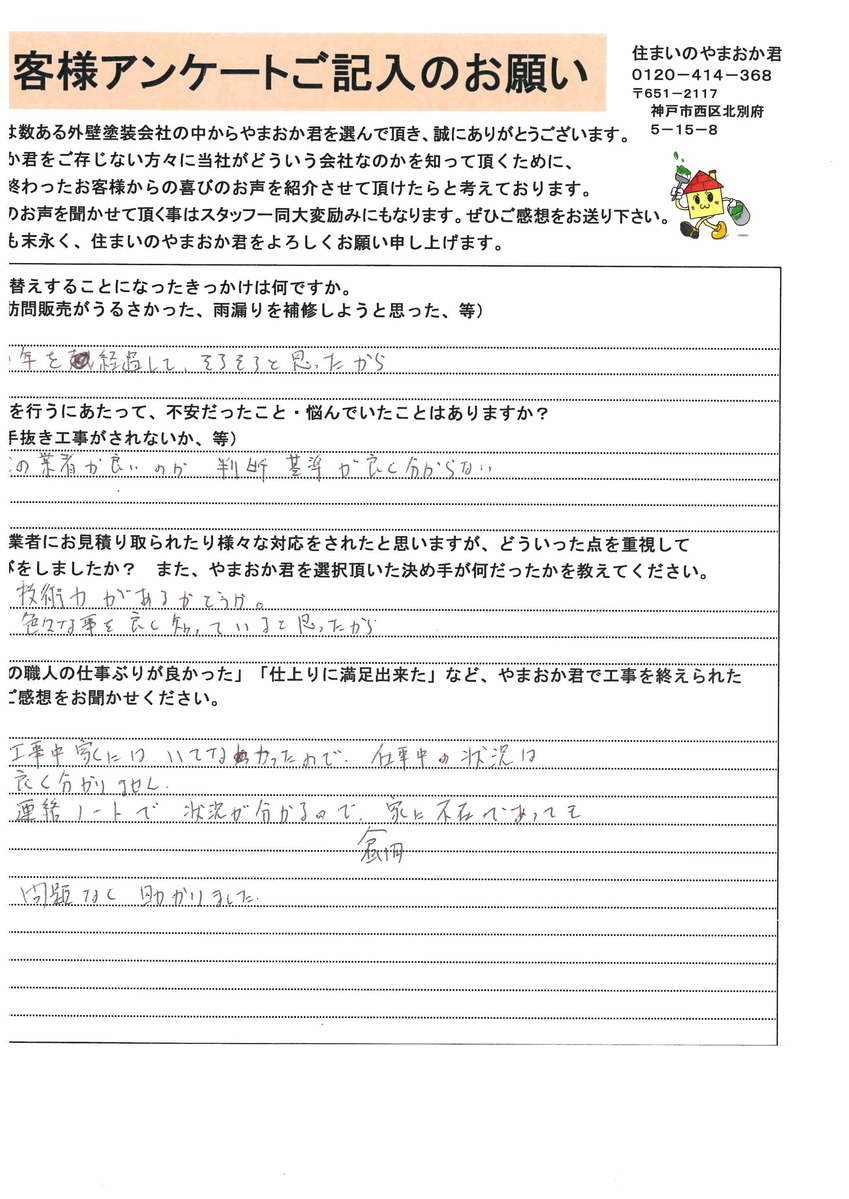 客様アンケートご記入のお願い
住まいのやまおか君
0120－414－368
〒651－2117
神戸市西区北別府
5－15－8
は数ある外壁塗装会社の中からやまおか君を選んで頂き、誠にありがとうございます。
か君をご存じない方々に当社がどういう会社なのかを知って頂くために、
終わったお客様からの喜びのお声を紹介させて頂けたらと考えております。
のお声を聞かせて頂く事はスタッフ一同大変励みにもなります。ぜひご感想をお送り下さい。
も末永く、住まいのやまおか君をよろしくお願い申し上げます。
替えすることになったきっかけは何ですか。
訪問販売がうるさかった、雨漏りを補修しようと思った、等）
年を経過して、そろそろと思ったから
を行うにあたって、不安だったこと・悩んでいたことはありますか？
手抜き工事がされないか、等）
の業者が良いのか 判断 基準が良く分からない
業者にお見積り取られたり様々な対応をされたと思いますが、どういった点を重視して
をしましたか？ また、やまおか君を選択頂いた決め手が何だったかを教えてください。
技術力があるかどうか。
色々な事を良く知っていると思ったから
の職人の仕事ぶりが良かった」「仕上りに満足出来た」など、やまおか君で工事を終えられた
ご感想をお聞かせください。
工事中家にはいてなかったので、仕事中の状況は
良く分かりません。
連絡ノートで 状況が分かるので、家に不在であっても
昼間
問題なく 助かりました。